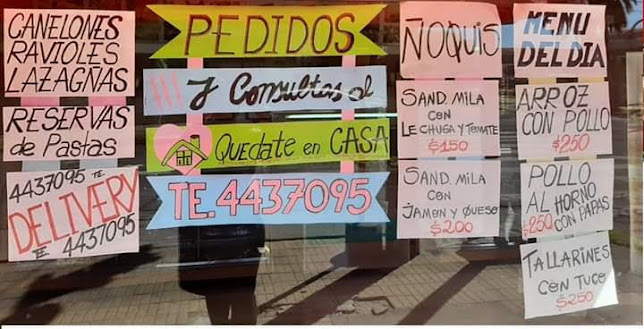 CANELONES
RAVIOLES
LAZAGÑAS
RESERVAS
de Pastas
4437095 TE.
DELIVERY
TE. 4437095
PEDIDOS
!!! y Consultas al
QUEDATE en CASA
TE. 4437095
ÑOQUIS
SAND. MILA
CON
LECHUGA Y TOMATE
$150
SAND. MILA
con
JAMON Y QUESO
$200
MENU
DEL DIA
ARROZ
CON POLLO
$250
POLLO
AL HORNO
$250 CON PAPAS
TALLARINES
CON TUCO
$250